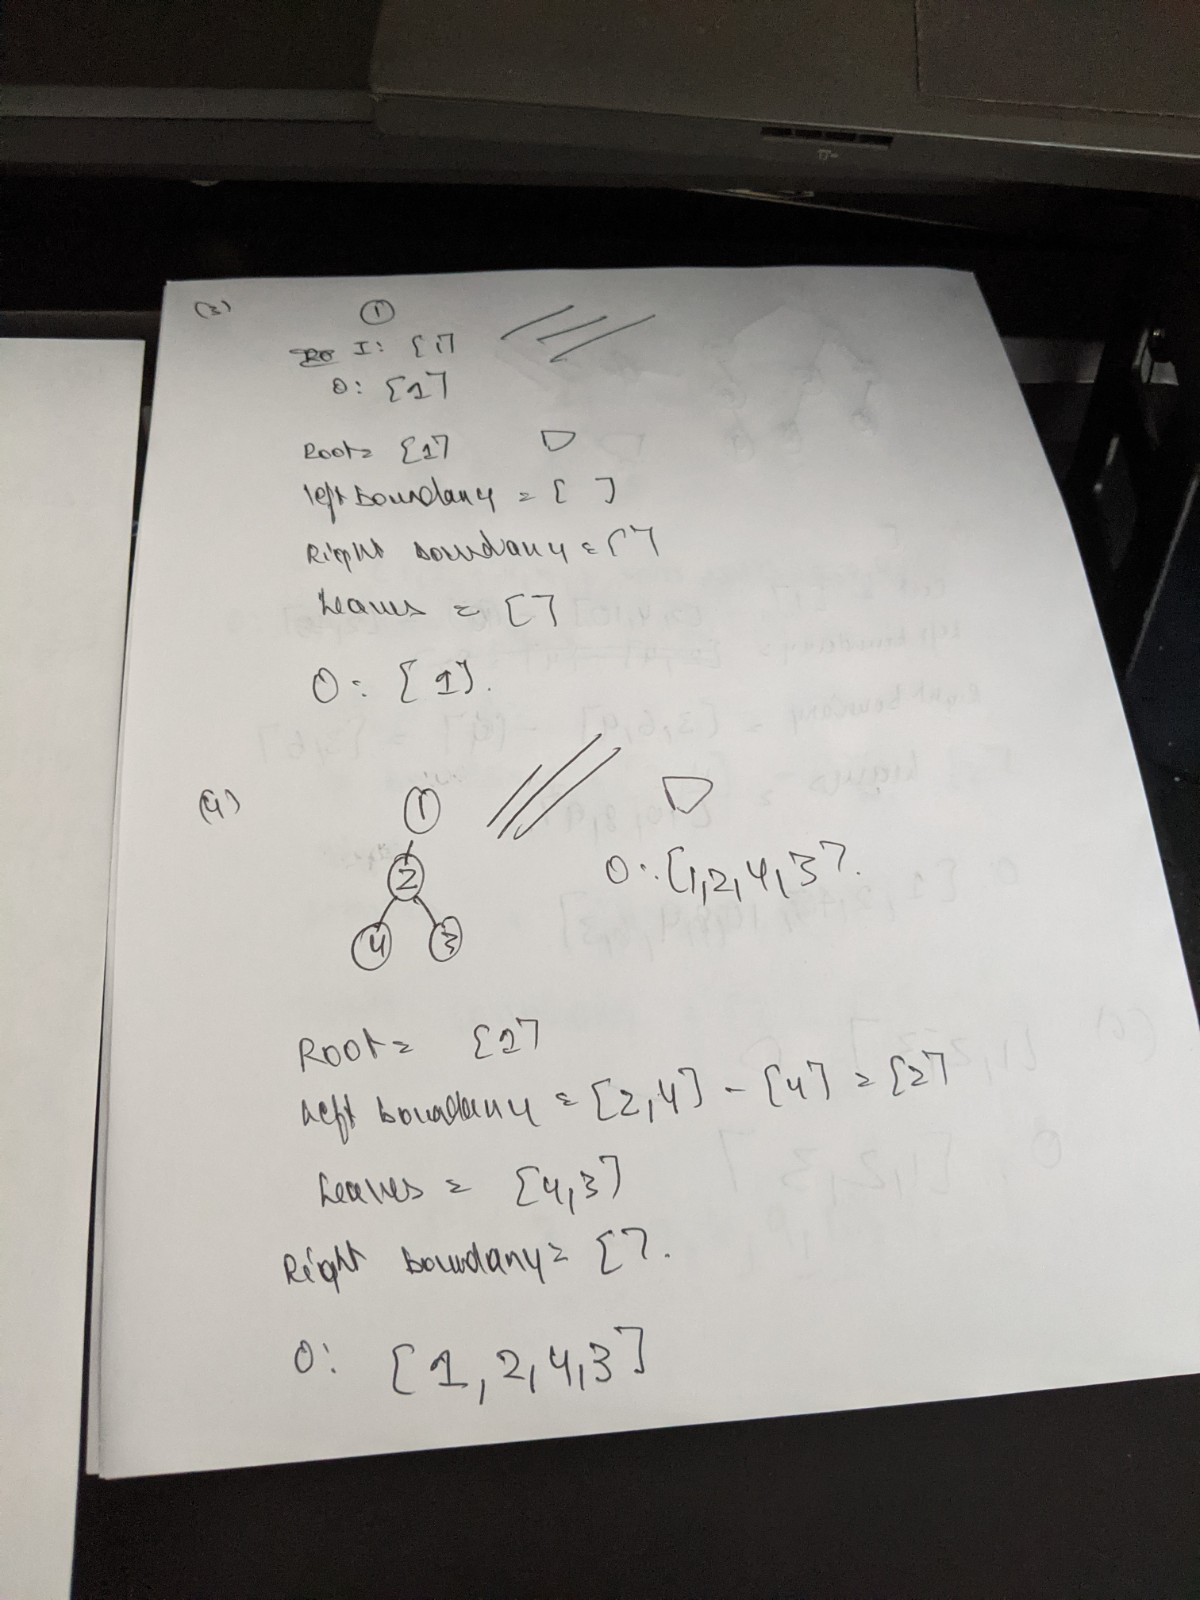 (3)
①
I: [1]
O: [1]
Root = [1]
left boundary = [ ]
Right boundary = [ ]
Leaves = [ ]
O: [1].
(4)
1
2
4 3
O: [1,2,4,3].
Root = [1]
Left boundary = [2,4] - [4] = [2]
Leaves = [4,3]
Right boundary = [ ].
O: [1,2,4,3]